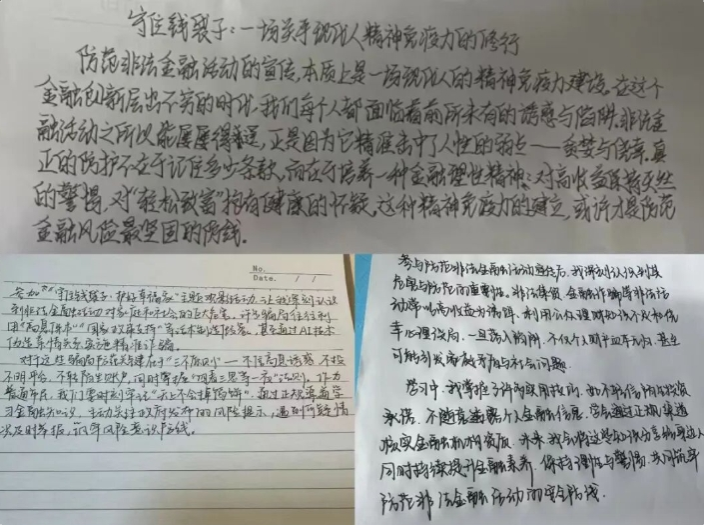 守住钱袋子：一场关于现代人精神免疫力的修行
防范非法金融活动的宣传,本质上是一场现代人的精神免疫力建设。在这个
金融创新层出不穷的时代,我们每个人都面临着前所未有的诱惑与陷阱。非法金
融活动之所以能屡屡得逞,正是因为它精准击中了人性的弱点——贪婪与侥幸。真
正的防护不在于记住多少条款,而在于培养一种金融理性精神：对高收益保持天然
的警惕,对“轻松致富”抱有健康的怀疑。这种精神免疫力的建立,或许才是防范
金融风险最坚固的防线。
No.
Date. / /
参加“守住钱袋子·护好幸福家”主题观影活动,让我深刻认识
到非法金融活动对家庭和社会的巨大危害。骗子往往利
用“高息保本”“国家政策支持”等话术制造陷阱,甚至通过AI技术
伪造亲情关系实施精准诈骗。
对于这些骗局防范关键在于“三不原则”——不信高息诱惑、不投
不明平台、不轻陌生账户,同时掌握“四看三思等一夜”法则。作为
普通市民,我们要时刻牢记“天上不会掉馅饼”,通过正规渠道学
习金融知识,主动关注政府发布的风险提示,遇到可疑情
况及时举报,筑牢风险意识防线。
参与防范非法金融活动宣传后,我深刻认识到其
危害与防范的重要性。非法集资、金融诈骗等非法活
动常以高收益为诱饵,利用公众理财知识不足和侥
幸心理设局,一旦落入陷阱,不仅个人财产血本无归,甚至
可能引发家庭矛盾与社会问题。
学习中,我掌握了许多实用技巧,如不轻信“高额投资
承诺、不随意透露个人金融信息、学会通过正规渠道
核实金融机构资质。未来,我会将这些知识分享给身边人,
同时持续提升金融素养,保持理性与警惕,共同筑牢
防范非法金融活动的安全防线。